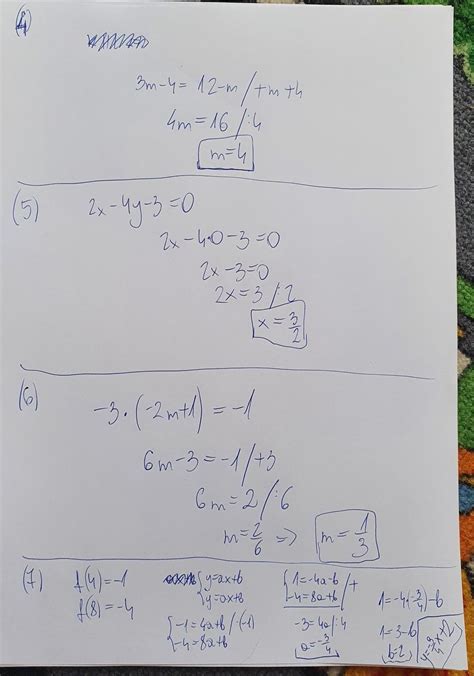 (4)
3m-4=12-m/+m+4
4m=16/:4
m=4
(5) 2x-4y-3=0
2x-4·0-3=0
2x-3=0
2x=3/2
x=3/2
(6) -3·(-2m+1)=-1
6m-3=-1/+3
6m=2/:6
m=2/6 => m=1/3
(7) f(4)=-1
f(8)=-4
{y=ax+b
y=ax+b
{-1=4a+b/·(-1)
-4=8a+b
{1=-4a-b
-4=8a+b /+
-3=4a/:4
a=-3/4
1=-4·(-3/4)-b
1=3-b
b=2
y=-3/4x+2